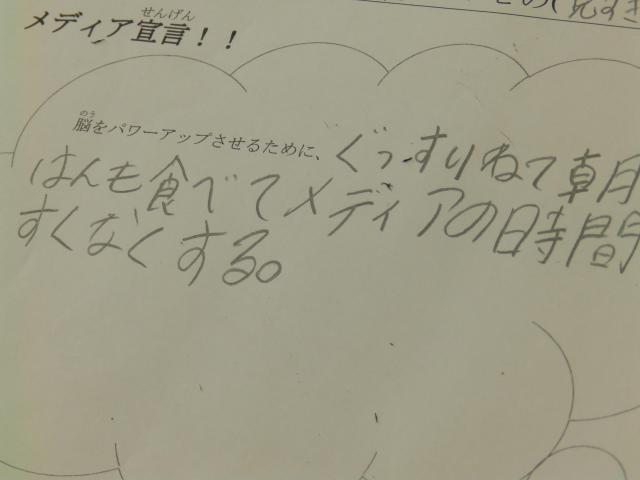 メディア宣言！！
脳をパワーアップさせるために、ぐっすりねて朝
はんも食べてメディアの時間
すくなくする。